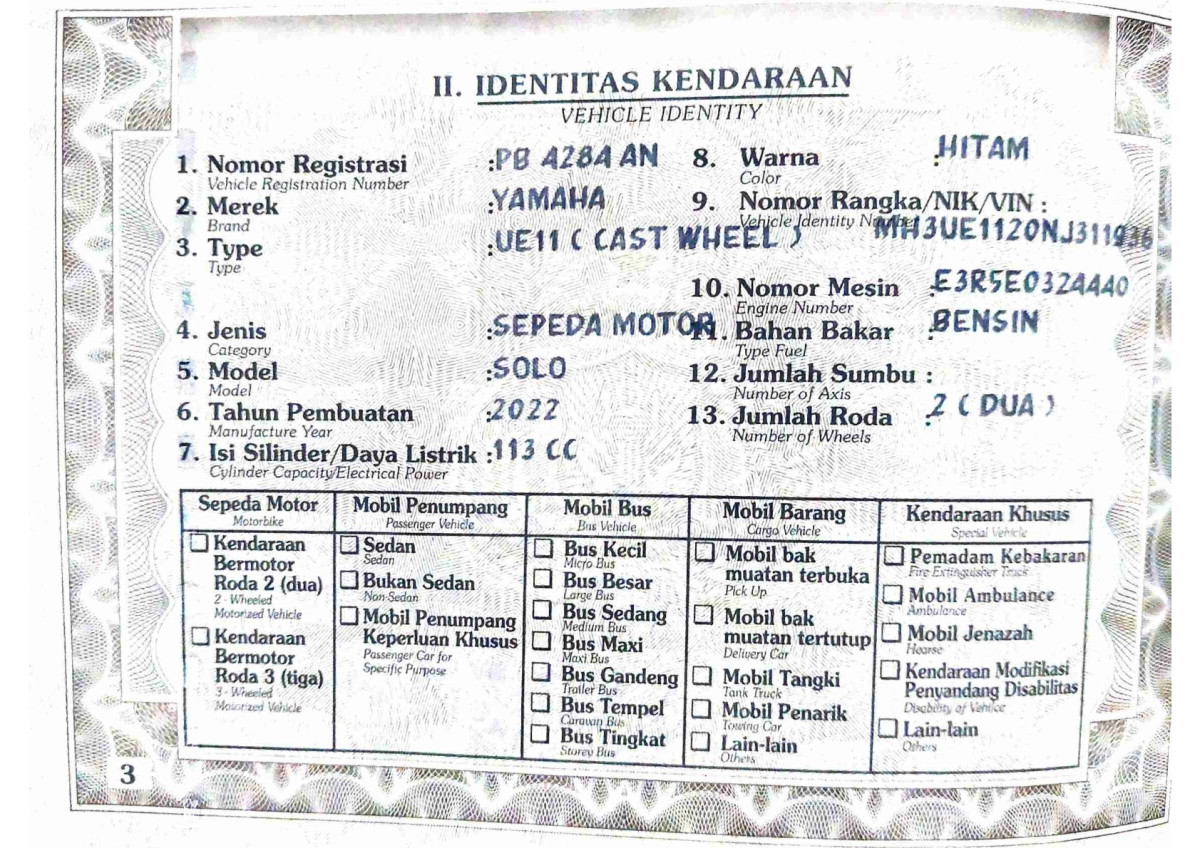 II. IDENTITAS KENDARAAN
VEHICLE IDENTITY
1. Nomor Registrasi :PB 4284 AN
Vehicle Registration Number
2. Merek :YAMAHA
Brand
3. Type :UE11 ( CAST WHEEL )
Type
4. Jenis :SEPEDA MOTOR
Category
5. Model :SOLO
Model
6. Tahun Pembuatan :2022
Manufacture Year
7. Isi Silinder/Daya Listrik :113 CC
Cylinder Capacity/Electrical Power
8. Warna :HITAM
Color
9. Nomor Rangka/NIK/VIN :
Vehicle Identity Number MH3UE1120NJ311936
10. Nomor Mesin :E3R5E0324440
Engine Number
11. Bahan Bakar :BENSIN
Type Fuel
12. Jumlah Sumbu :
Number of Axis
13. Jumlah Roda :2 ( DUA )
Number of Wheels
Sepeda Motor
Motorbike
Kendaraan
Bermotor
Roda 2 (dua)
2 - Wheeled
Motorized Vehicle
Kendaraan
Bermotor
Roda 3 (tiga)
3 - Wheeled
Motorized Vehicle
Mobil Penumpang
Passenger Vehicle
Sedan
Sedan
Bukan Sedan
Non-Sedan
Mobil Penumpang
Keperluan Khusus
Passenger Car for
Specific Purpose
Mobil Bus
Bus Vehicle
Bus Kecil
Micro Bus
Bus Besar
Large Bus
Bus Sedang
Medium Bus
Bus Maxi
Maxi Bus
Bus Gandeng
Trailer Bus
Bus Tempel
Caravan Bus
Bus Tingkat
Storey Bus
Mobil Barang
Cargo Vehicle
Mobil bak
muatan terbuka
Pick Up
Mobil bak
muatan tertutup
Delivery Car
Mobil Tangki
Tank Truck
Mobil Penarik
Towing Car
Lain-lain
Others
Kendaraan Khusus
Special Vehicle
Pemadam Kebakaran
Fire Extinguisher Truck
Mobil Ambulance
Ambulance
Mobil Jenazah
Hearse
Kendaraan Modifikasi
Penyandang Disabilitas
Disability of Vehilce
Lain-lain
Others
3